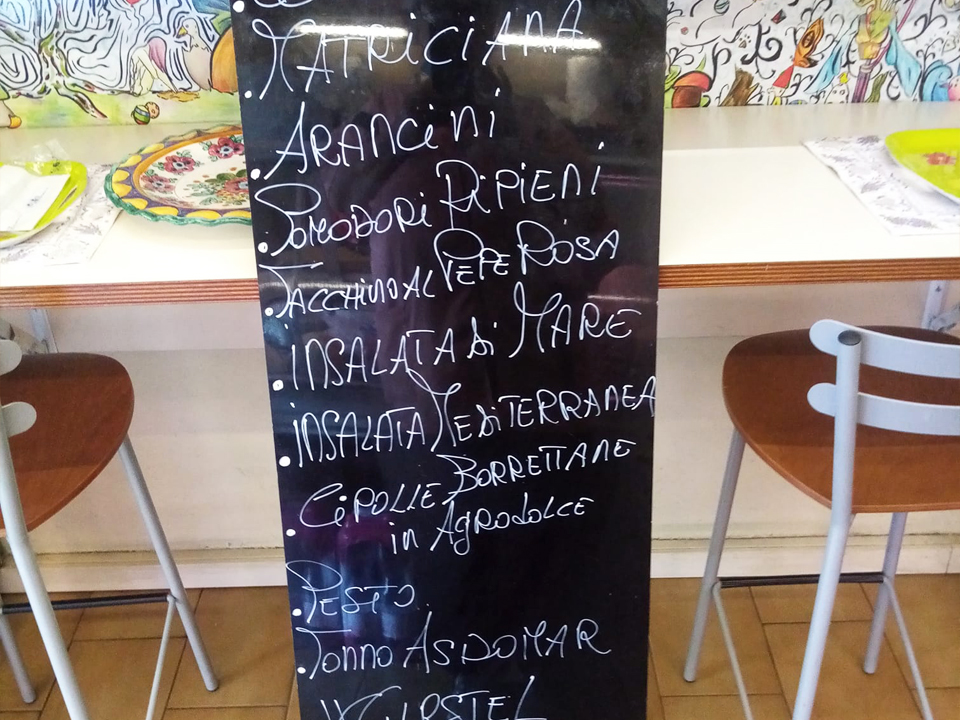 MATRICIANA
ARANCINI
POMODORI RIPIENI
TACCHINO AL PEPE ROSA
INSALATA di MARE
INSALATA MEDITERRANEA
CIPOLLE BORRETTANE
in AGRODOLCE
PESTO
TONNO ASDOMAR
WURSTEL